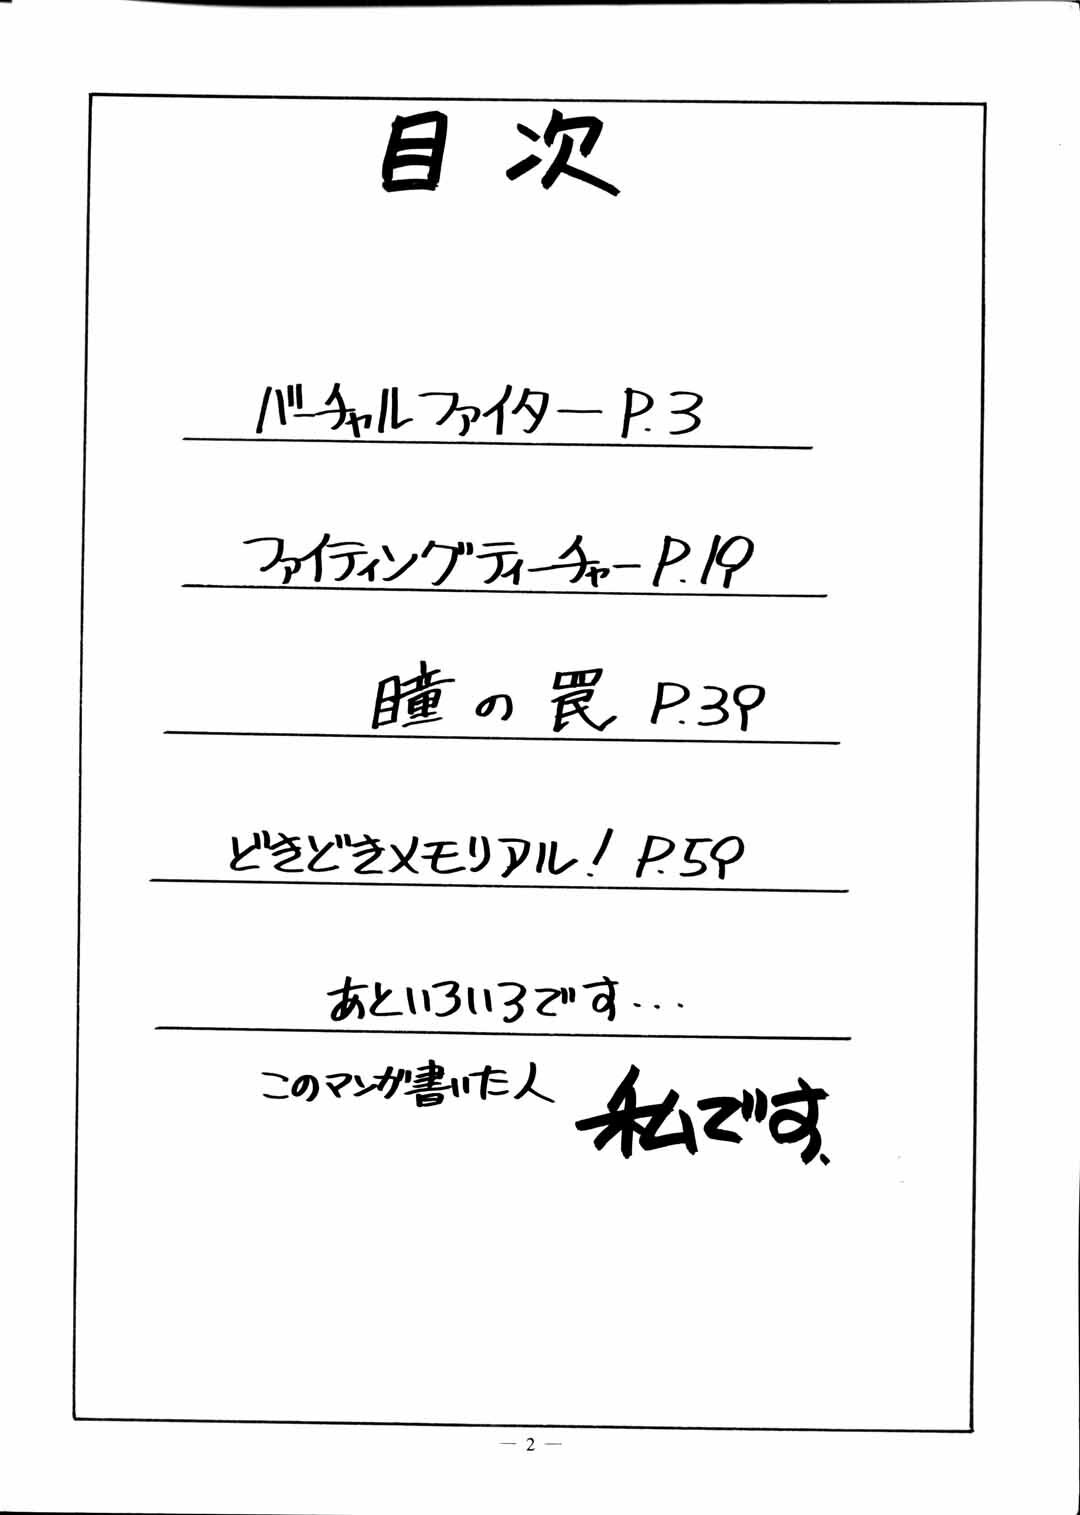 目次
バーチャルファイター P.3
ファイティングティーチャー P.19
瞳の罠 P.39
どきどきメモリアル! P.59
あといろいろです...
このマンガ書いた人 私です、
— 2 —